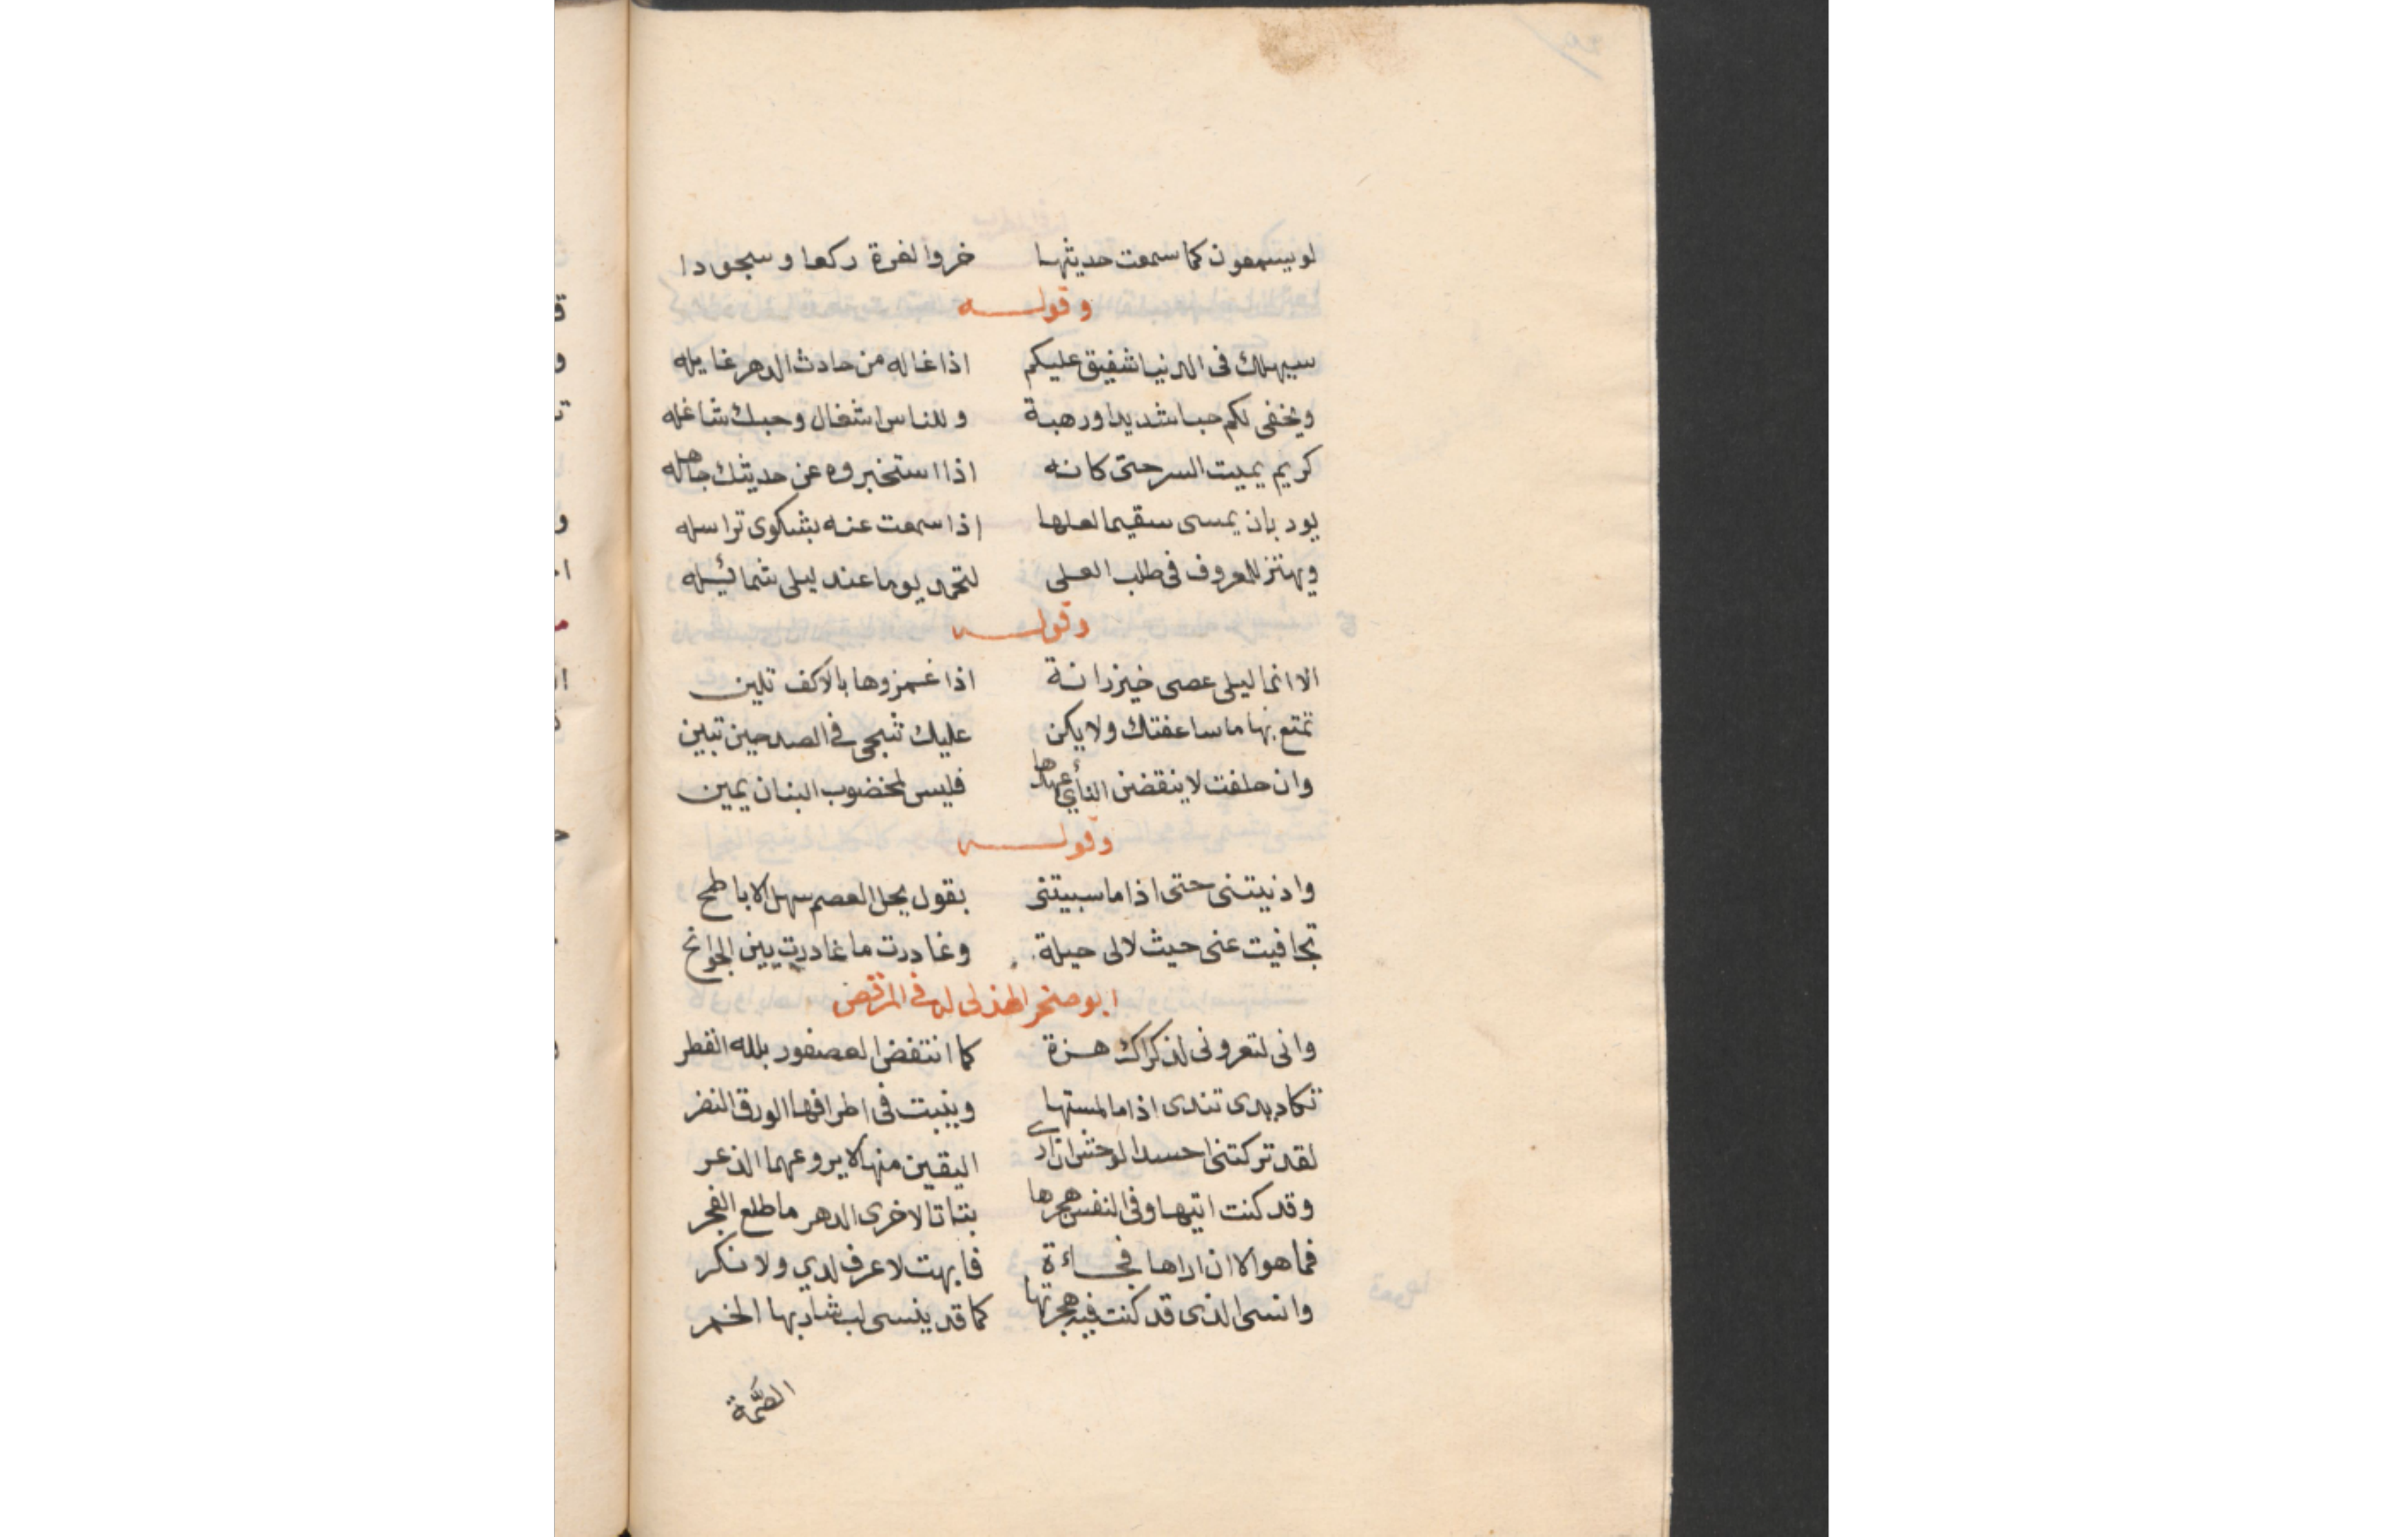 لو يسمعون كما سمعت حديثها خروا لعزة ركعا وسجودا
وقوله
سيهلك فى الدنيا شفيق عليكم اذا غاله من حادث الدهر غايله
ويخفى لكم حبا شديدا ورهبة وللناس اشغال وحبك شاغله
كريم يميت السر حتى كانه اذا استخبروه عن حديثك جاهله
يود بان يمسى سقيما لعلها اذا سمعت عنه بشكوى تراسله
ويهتز للمعروف فى طلب العلى لتحمد يوما عند ليلى شمائيله
وقوله
الا انما ليلى عصى خيزرانة اذا غمزوها بالاكف تلين
تمتع بها ما ساعفتك ولا يكن عليك شجى فى الصدر حين تبين
وان حلفت لا ينقضن النأي عهدها فليس لمخضوب البنان يمين
وقوله
وادنيتنى حتى اذا ما سبيتنى بقول يحل العصم سهل الاباطح
تجافيت عنى حيث لا لى حيلة وغادرت ما غادرت بين الجوانح
ابو صخر الهذلى له فى المرقص
وانى لتعرونى لذكراك هزة كما انتفض العصفور بلله القطر
تكاد يدى تندى اذا ما لمستها وينبت فى اطرافها الورق النضر
لقد تركتنى احسد الوحش ان ارى اليفين منها لا يروعهما الذعر
وقد كنت اتيها وفى النفس هجرها بتاتا لاخرى الدهر ما طلع الفجر
فما هو الا ان اراها فجاءة فابهت لا عرف لدي ولا نكر
وانسى الذى قد كنت فيه هجرتها كما قد ينسى لب شاربها الخمر
الصمّة